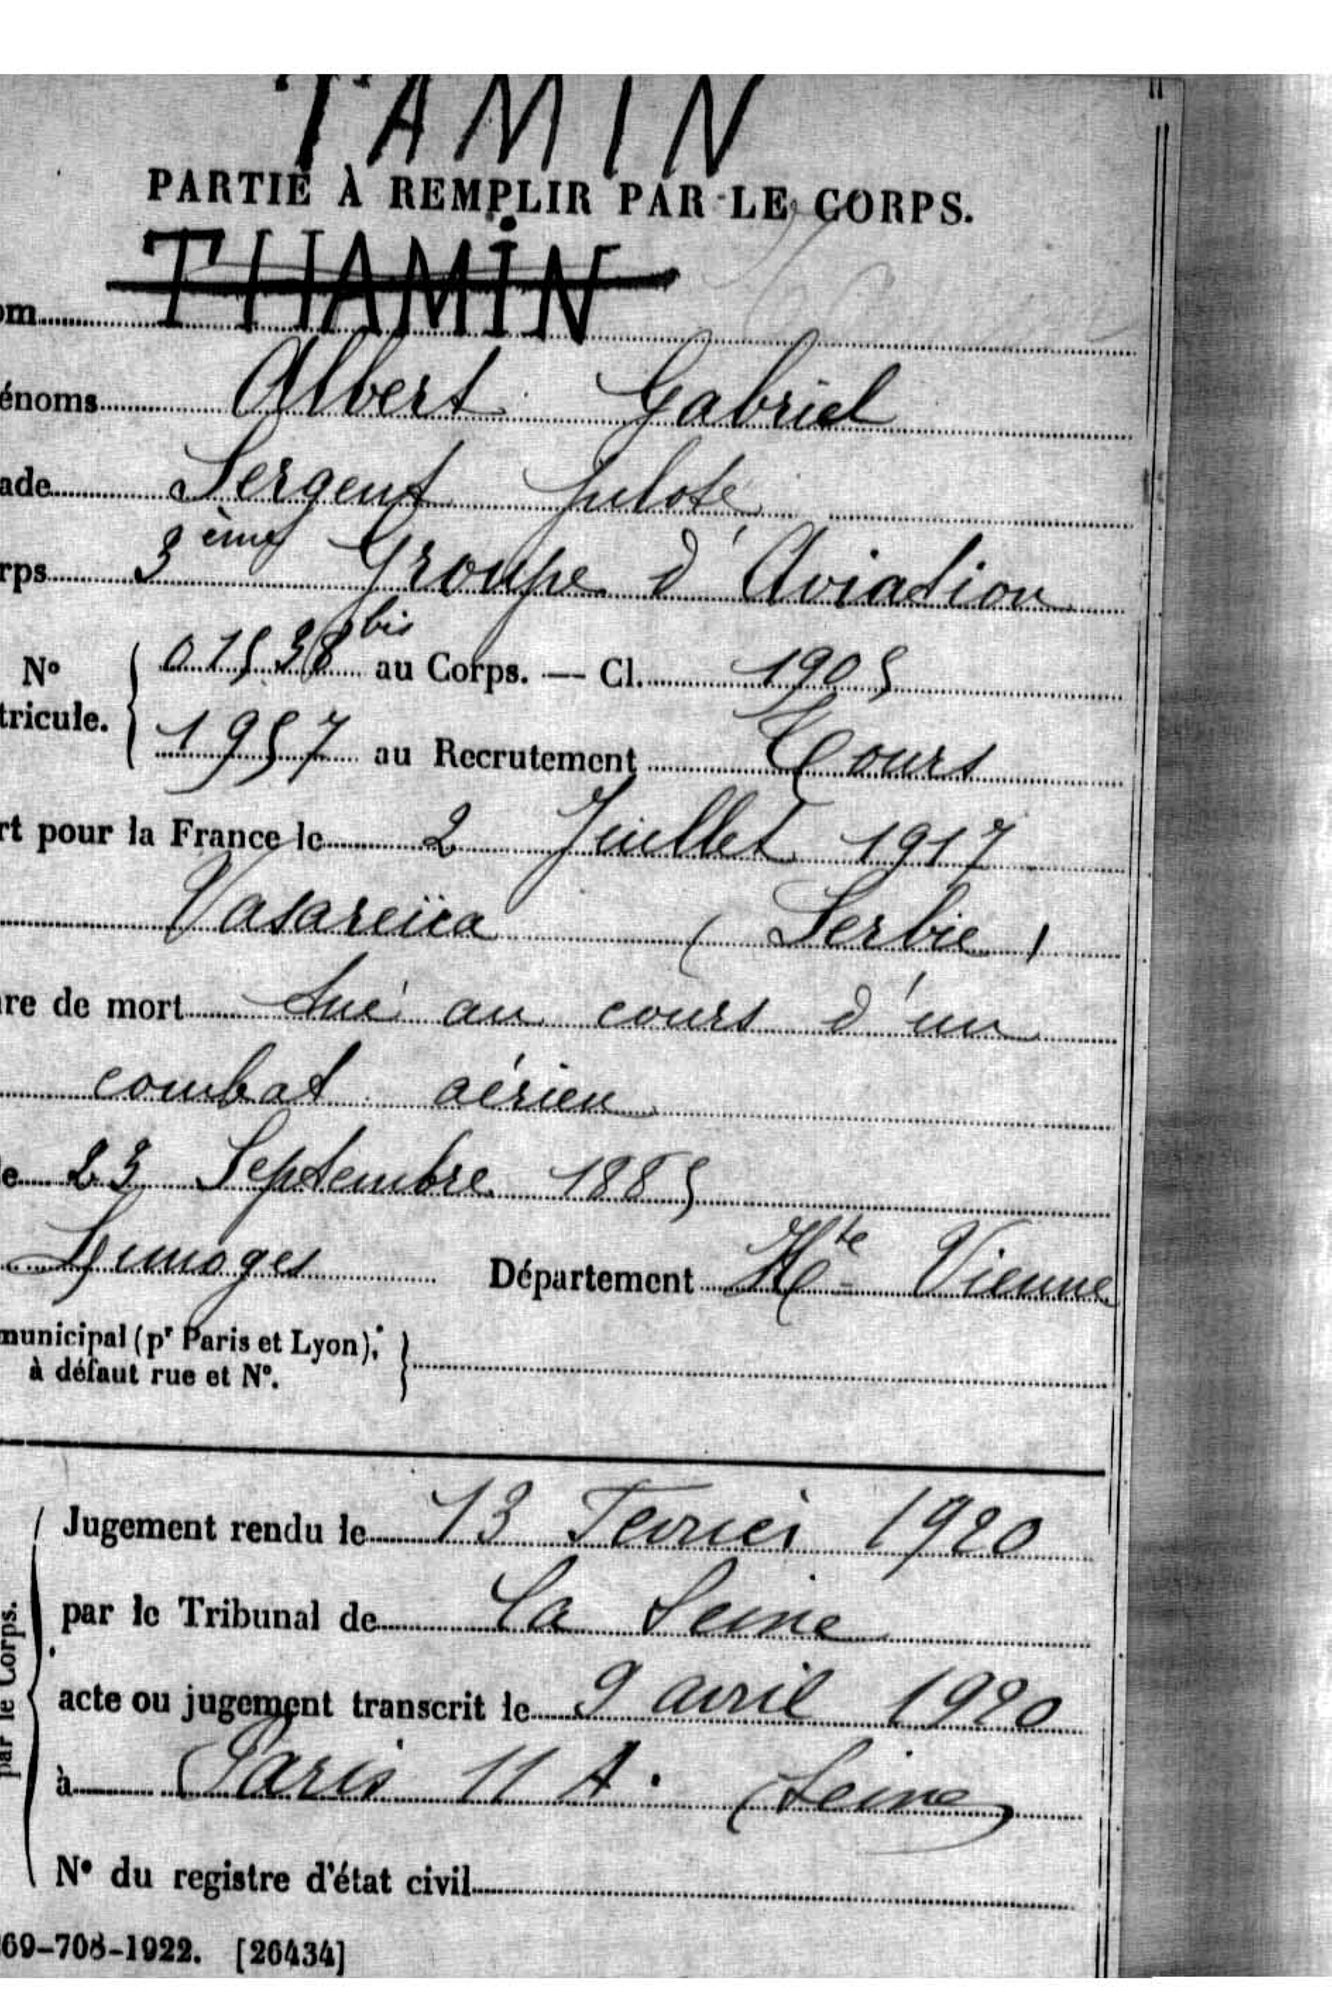 TAMIN
PARTIE À REMPLIR PAR LE CORPS.
om THAMIN
énoms Albert Gabriel
ade Sergent pilote
rps 3ème Groupe d'Aviation
N° 01538 bis au Corps. — Cl. 1905
tricule. 1957 au Recrutement Tours
rt pour la France le 2 Juillet 1917
Vasareïca (Serbie)
re de mort tué au cours d'un
combat aérien
e 23 Septembre 1885
Limoges Département Hte Vienne
municipal (pr Paris et Lyon),
à défaut rue et N°.
Jugement rendu le 13 Fevrier 1920
par le Tribunal de la Seine
par le Corps.
acte ou jugement transcrit le 9 avril 1920
à Paris 11 A. (Seine)
N° du registre d'état civil
69-708-1922. [26434]